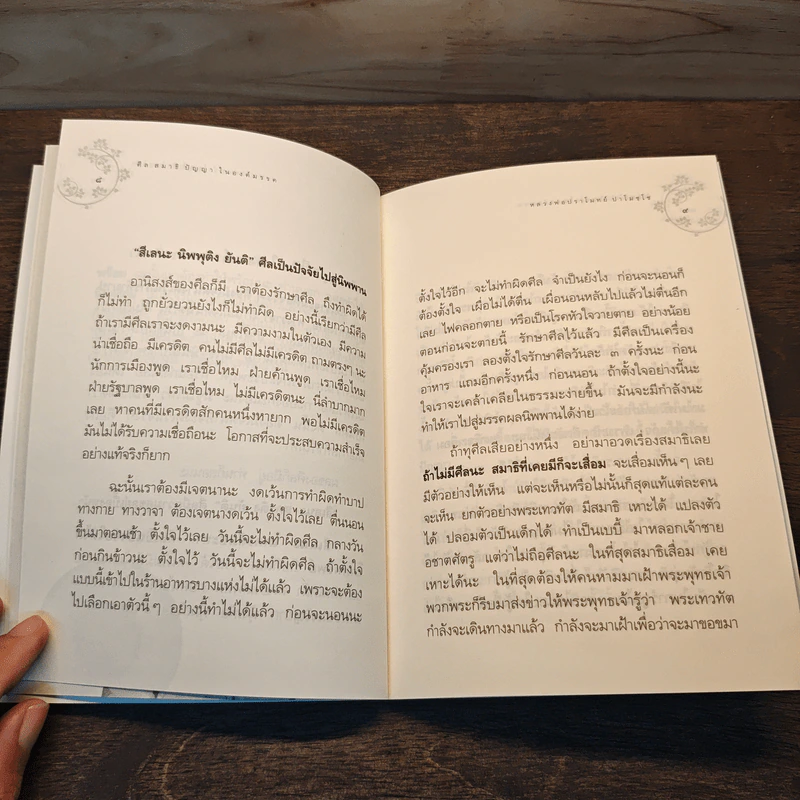 ศีล สมาธิ ปัญญา ในองค์มรรค
๘
"สีเลนะ นิพพุติง ยันติ" ศีลเป็นปัจจัยไปสู่นิพพาน
อานิสงส์ของศีลก็มี เราต้องรักษาศีล ถึงทำผิดได้
ก็ไม่ทำ ถูกยั่วยวนยังไงก็ไม่ทำผิด อย่างนี้เรียกว่ามีศีล
ถ้าเรามีศีลเราจะงดงามนะ มีความงามในตัวเอง มีความ
น่าเชื่อถือ มีเครดิต คนไม่มีศีลไม่มีเครดิต ถามตรงๆ นะ
นักการเมืองพูด เราเชื่อไหม ฝ่ายค้านพูด เราเชื่อไหม
ฝ่ายรัฐบาลพูด เราเชื่อไหม ไม่มีเครดิตนะ นี่ลำบากมาก
เลย หาคนที่มีเครดิตสักคนหนึ่งหายาก พอไม่มีเครดิต
มันไม่ได้รับความเชื่อถือนะ โอกาสที่จะประสบความสำเร็จ
อย่างแท้จริงก็ยาก
ฉะนั้นเราต้องมีเจตนานะ งดเว้นการทำผิดทำบาป
ทางกาย ทางวาจา ต้องเจตนางดเว้น ตั้งใจไว้เลย ตื่นนอน
ขึ้นมาตอนเช้า ตั้งใจไว้เลย วันนี้จะไม่ทำผิดศีล กลางวัน
ก่อนกินข้าวนะ ตั้งใจไว้ วันนี้จะไม่ทำผิดศีล ถ้าตั้งใจ
แบบนี้เข้าไปในร้านอาหารบางแห่งไม่ได้แล้ว เพราะจะต้อง
ไปเลือกเอาตัวนี้ๆ อย่างนี้ทำไม่ได้แล้ว ก่อนจะนอนนะ
หลวงพ่อปราโมทย์ ปาโมชฺโช
๙
ตั้งใจไว้อีก จะไม่ทำผิดศีล จำเป็นยังไง ก่อนจะนอนก็
ต้องตั้งใจ เผื่อไม่ได้ตื่น เผื่อนอนหลับไปแล้วไม่ตื่นอีก
เลย ไฟคลอกตาย หรือเป็นโรคหัวใจวายตาย อย่างน้อย
ตอนก่อนจะตายนี้ รักษาศีลไว้แล้ว มีศีลเป็นเครื่อง
คุ้มครองเรา ลองตั้งใจรักษาศีลวันละ ๓ ครั้งนะ ก่อน
อาหาร แถมอีกครั้งหนึ่ง ก่อนนอน ถ้าตั้งใจอย่างนี้นะ
ใจเราจะเคล้าเคลียในธรรมะง่ายขึ้น มันจะมีกำลังนะ
ทำให้เราไปสู่มรรคผลนิพพานได้ง่าย
ถ้าทุศีลเสียอย่างหนึ่ง อย่ามาอวดเรื่องสมาธิเลย
ถ้าไม่มีศีลนะ สมาธิที่เคยมีก็จะเสื่อม จะเสื่อมเห็นๆ เลย
มีตัวอย่างให้เห็น แต่จะเห็นหรือไม่นั้นก็สุดแท้แต่ละคน
จะเห็น ยกตัวอย่างพระเทวทัต มีสมาธิ เหาะได้ แปลงตัว
ได้ ปลอมตัวเป็นเด็กได้ ทำเป็นเบบี้ มาหลอกเจ้าชาย
อชาตศัตรู แต่ว่าไม่ถือศีลนะ ในที่สุดสมาธิเสื่อม เคย
เหาะได้นะ ในที่สุดต้องให้คนหามมาเฝ้าพระพุทธเจ้า
พวกพระก็รีบมาส่งข่าวให้พระพุทธเจ้ารู้ว่า พระเทวทัต
กำลังจะเดินทางมาแล้ว กำลังจะมาเฝ้าเพื่อว่าจะมาขอขมา